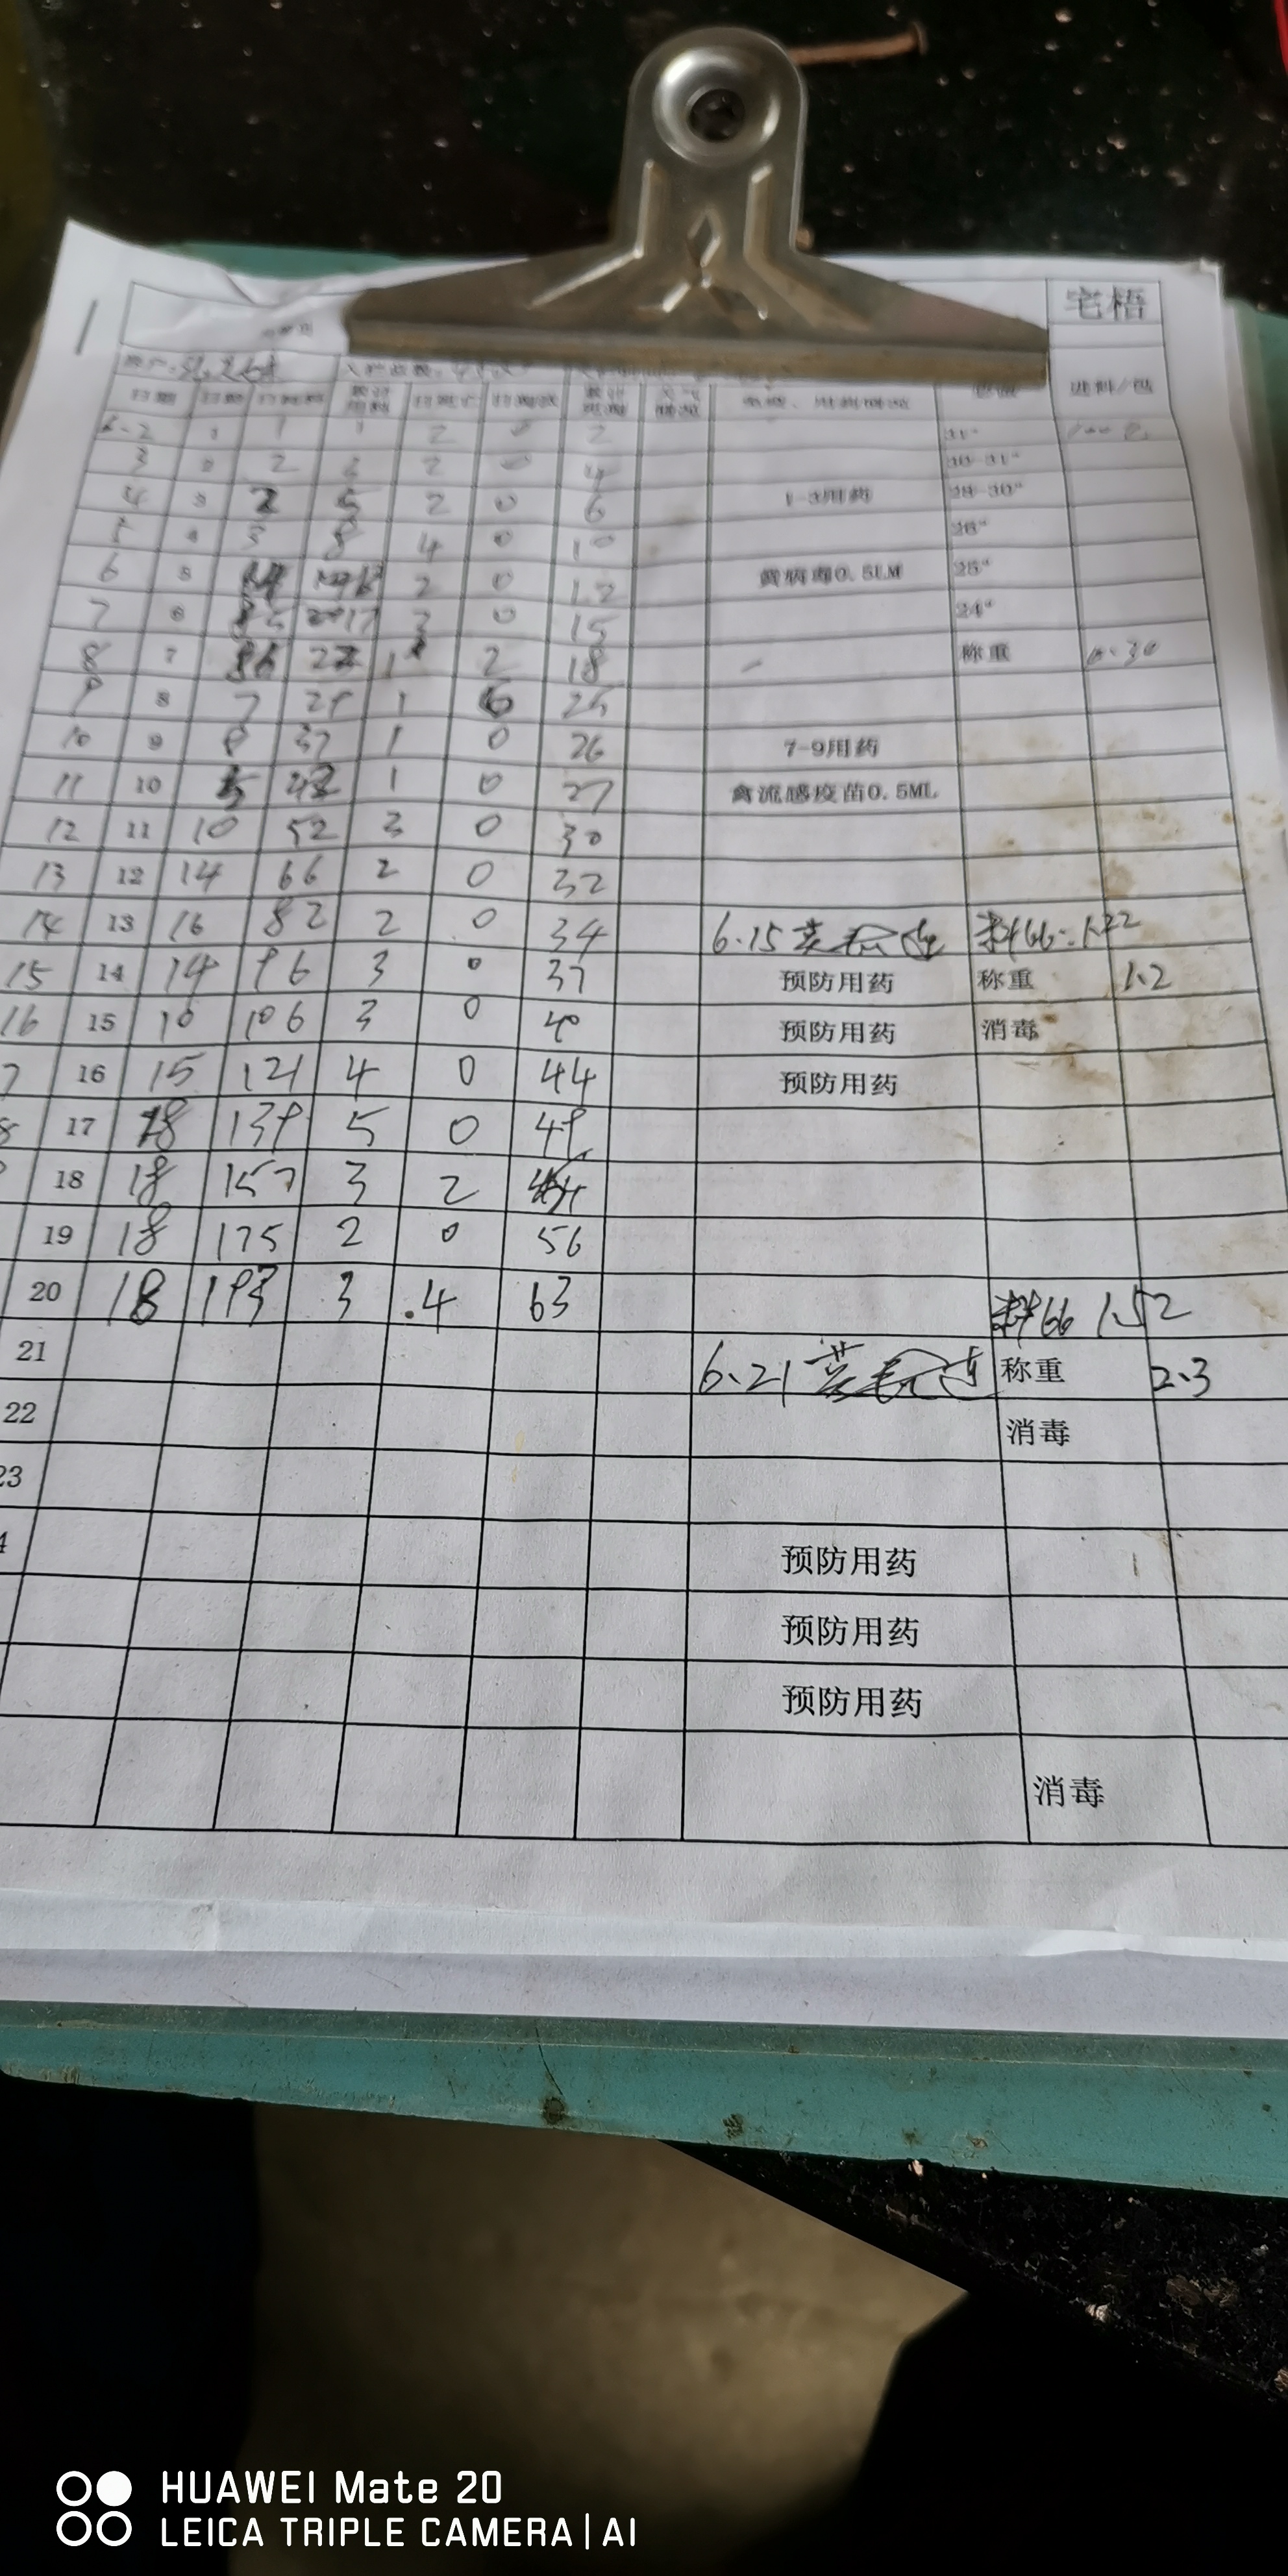 宅梧
日期 日龄 日耗料 累计用料 日死亡 日淘汰 累计死淘 天气情况 免疫、用药情况 进料/包
6.2 1 1 1 2 0 2 31°
3 2 2 2 4 30-31°
4 3 2 5 2 0 6 1-3用药 28-30°
5 4 3 8 4 0 10 26°
6 5 2 0 12 25°
7 6 3 0 15 24°
8 7 2 18 称重 0.30
9 8 7 29 1 6 25
10 9 8 37 1 0 26 7-9用药
11 10 5 42 1 0 27 禽流感疫苗0.5ML
12 11 10 52 3 0 30
13 12 14 66 2 0 32
14 13 16 82 2 0 34 6.15 料66:
15 14 14 96 3 0 37 预防用药 称重 1.2
16 15 10 106 3 0 40 预防用药 消毒
7 16 15 121 4 0 44 预防用药
17 18 139 5 0 49
18 18 157 3 2
19 18 175 2 0 56
20 18 193 3 .4 63 料66 1.52
21 6.21 称重 2.3
22 消毒
23
4 预防用药
预防用药
预防用药
消毒
HUAWEI Mate 20
LEICA TRIPLE CAMERA | AI